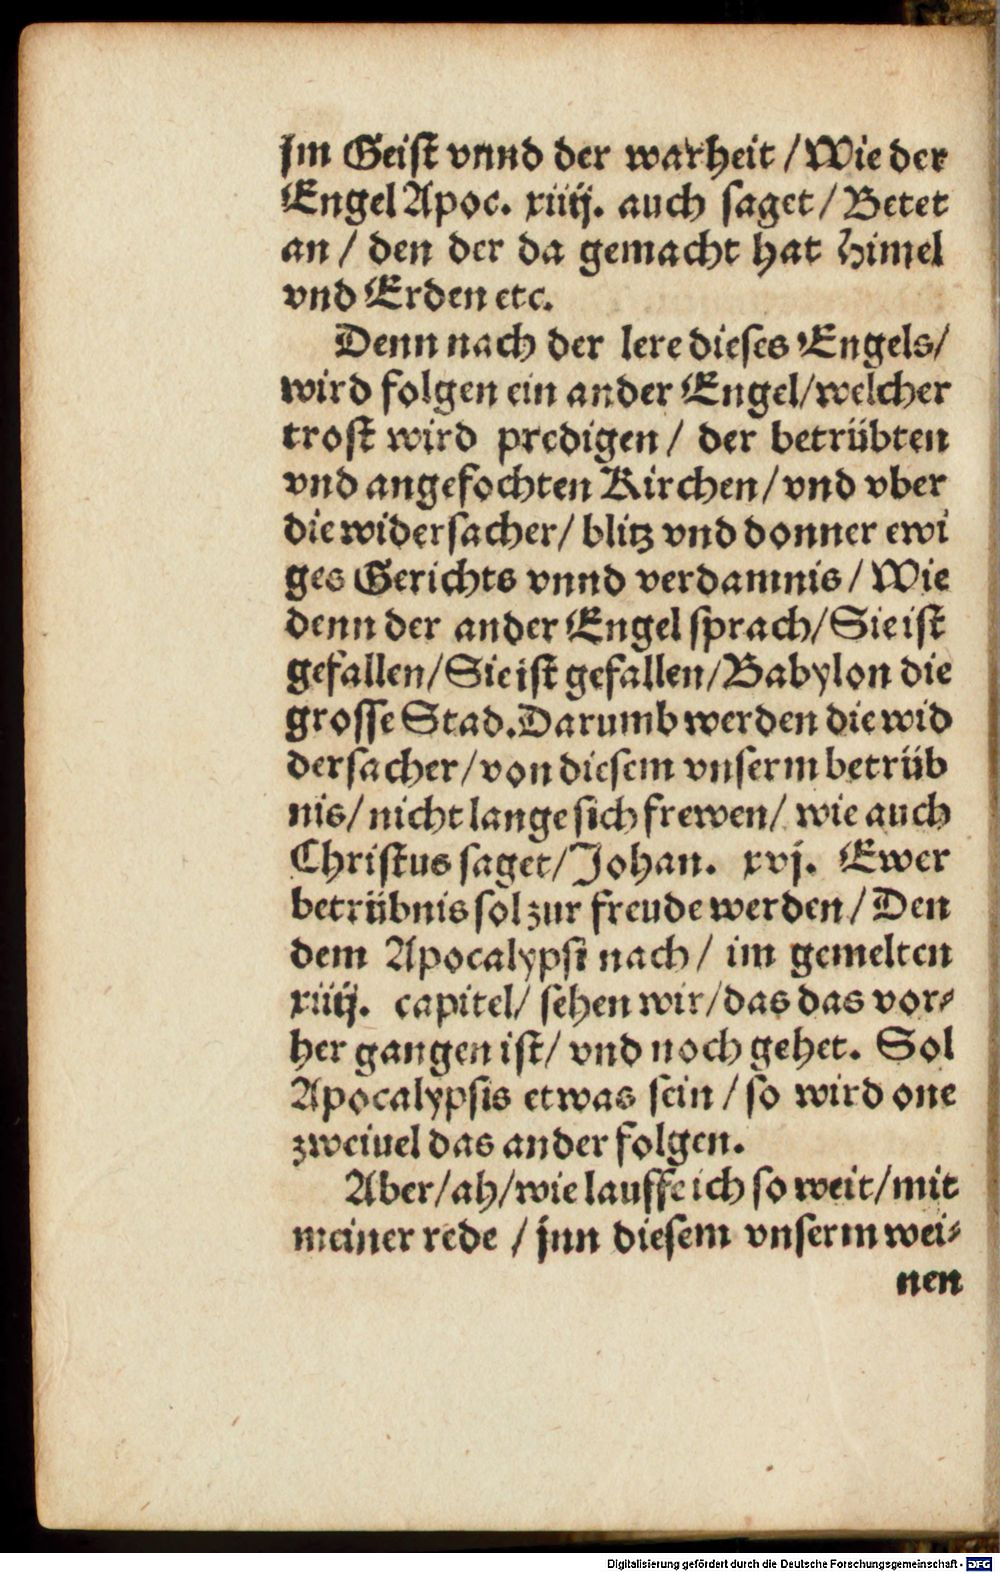 jm Geist vnnd der warheit / Wie der
Engel Apoc. xiiij. auch saget / Betet
an / den der da gemacht hat Himel
vnd Erden etc.
Denn nach der lere dieses Engels /
wird folgen ein ander Engel / welcher
trost wird predigen / der betrübten
vnd angefochten Kirchen / vnd vber
die widersacher / blitz vnd donner ewi
ges Gerichts vnnd verdamnis / Wie
denn der ander Engel sprach / Sie ist
gefallen / Sie ist gefallen / Babylon die
grosse Stad. Darumb werden die wid
dersacher / von diesem vnserm betrüb
nis / nicht lange sich frewen / wie auch
Christus saget / Johan. xvj. Ewer
betrübnis sol zur freude werden / Den
dem Apocalypsi nach / im gemelten
xiiij. capitel / sehen wir / das das vor⸗
her gangen ist / vnd noch gehet. Sol
Apocalypsis etwas sein / so wird one
zweiuel das ander folgen.
Aber / ah / wie lauffe ich so weit / mit
meiner rede / jnn diesem vnserm wei⸗
nen
Digitalisierung gefördert durch die Deutsche Forschungsgemeinschaft - DFG